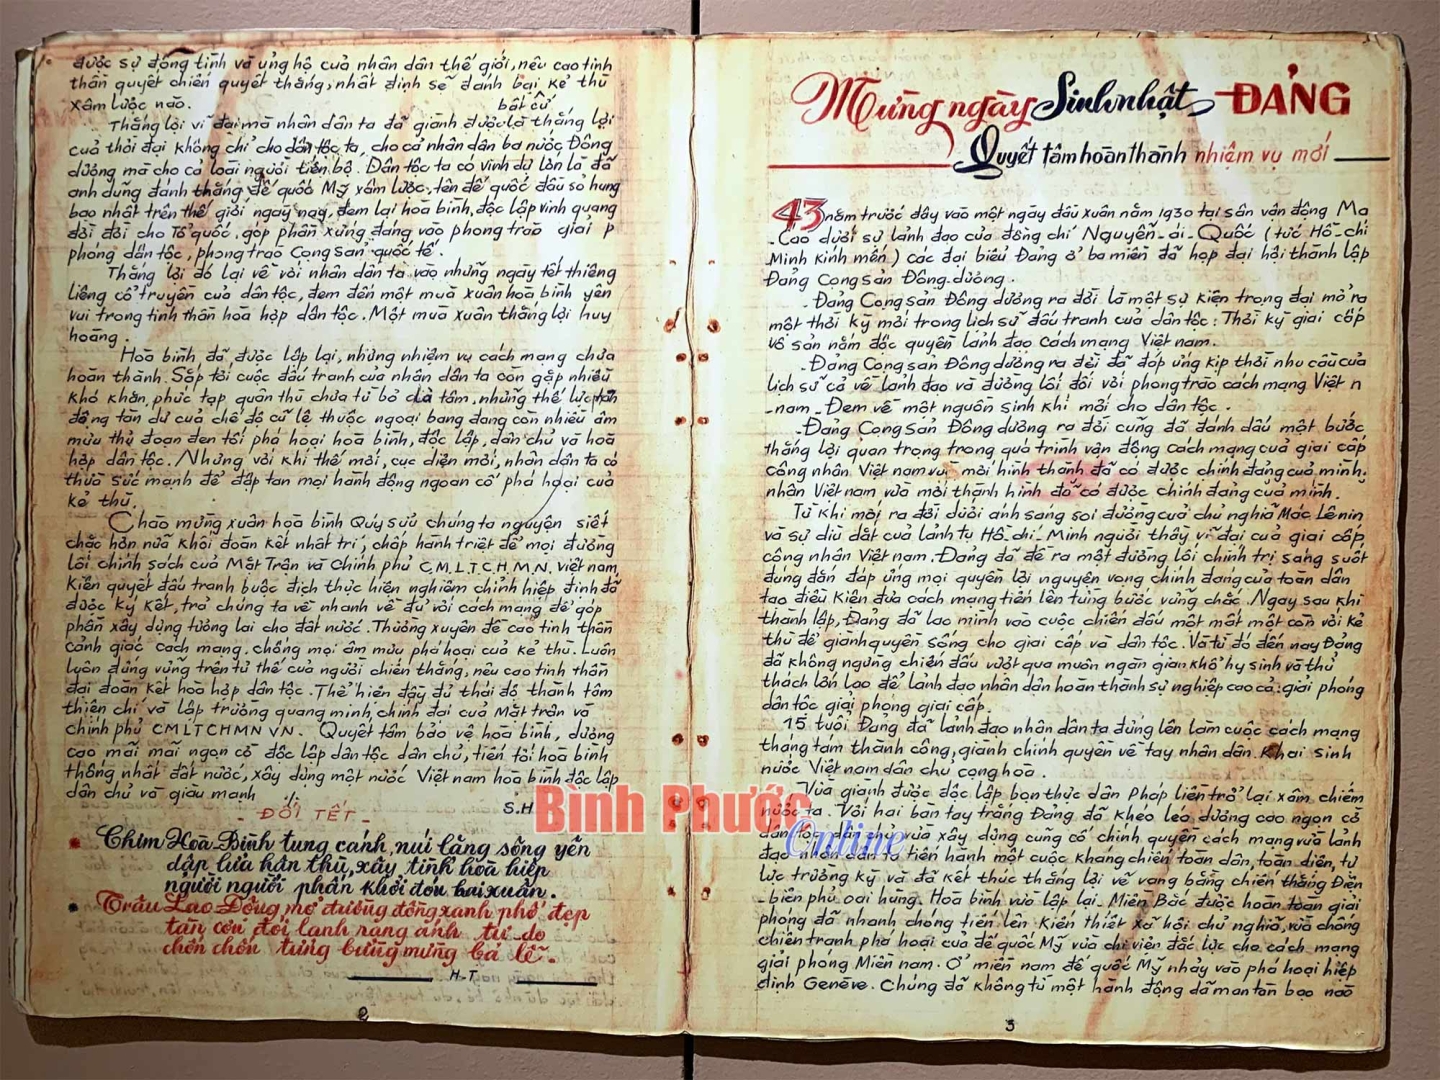 được sự đồng tình và ủng hộ cuả nhân dân thế giới, nêu cao tinh
thần quyết chiến quyết thắng, nhất định sẽ đánh bại kẻ thù
bất cứ
xâm lược nào.
Thắng lợi vĩ đại mà nhân dân ta đã giành được là thắng lợi
cuả thời đại không chỉ cho dân tộc ta, cho cả nhân dân ba nước Đông
dương mà cho cả loài người tiến bộ. Dân tộc ta có vinh dự lớn là đã
anh dũng đánh thắng đế quốc Mỹ xâm lược, tên đế quốc đầu sỏ hung
bạo nhất trên thế giới ngày nay, đem lại hoà bình, độc lập vinh quang
đời đời cho Tổ quốc. góp phần xứng đáng vào phong trào giải p
phóng dân tộc, phong trào Cọng sản quốc tế.
Thắng lợi đó lại về với nhân dân ta vào những ngày tết thiêng
liêng cổ truyền cuả dân tộc, đem đến một muà xuân hoà bình yên
vui trong tinh thần hoà hợp dân tộc. Một muà xuân thắng lợi huy
hoàng.
Hoà bình đã được lập lại, những nhiệm vụ cách mạng chưa
hoàn thành. Sắp tới cuộc đấu tranh cuả nhân dân ta còn gặp nhiều
khó khăn, phức tạp quân thù chưa từ bỏ dã tâm, những thế lực phản
động tàn dư cuả chế độ cũ lệ thuộc ngoại bang đang còn nhiều âm
mưu thủ đoạn đen tối phá hoại hoà bình, độc lập, dân chủ và hoà
hợp dân tộc. Nhưng với khí thế mới, cục diện mới, nhân dân ta có
thừa sức mạnh để đập tan mọi hành động ngoan cố phá hoại cuả
kẻ thù.
Chào mừng xuân hoà bình Qúy sửu chúng ta nguyện siết
chặc hơn nữa khối đoàn kết nhất trí, chấp hành triệt để mọi đường
lối chính sách cuả Mặt Trận và Chính phủ C.M.L.T.C.H.M.N. việt nam,
kiên quyết đấu tranh buộc địch thực hiện nghiêm chỉnh hiệp định đã
được ký kết, trả chúng ta về nhanh về đủ với cách mạng để góp
phần xây dựng tương lai cho đất nước. Thường xuyên đề cao tinh thần
cảnh giác cách mạng, chống mọi âm mưu phá hoại cuả kẻ thù. Luôn
luôn đứng vững trên tư thế cuả người chiến thắng, nêu cao tinh thần
đại đoàn kết hoà hợp dân tộc. Thể hiện đầy đủ thái độ thành tâm
thiện chí và lập trường quang minh, chính đại cuả Mặt trận và
chính phủ CMLTCHMN VN. Quyết tâm bảo vệ hoà bình, dương
cao mãi mãi ngọn cờ độc lập dân tộc dân chủ, tiến tới hoà bình
thống nhất đất nước, xây dựng một nước Việt nam hoà bình độc lập
dân chủ và giàu mạnh ./.
S.H
- ĐỐI TẾT -
Chim Hoà Bình tung cánh, núi lặng sông yên
dập lửa hận thù, xây tình hoà hiệp
người người phấn khởi đón hai xuân.
Trâu Lao Động mở đường đồng xanh phố đẹp
tan cơn đói lạnh rạng ánh tự do
chốn chốn tưng bừng mừng bá lễ.
H-T.
2
Mừng ngày Sinh nhật ĐẢNG
Quyết tâm hoàn thành nhiệm vụ mới
43 năm trước đây vào một ngày đầu xuân năm 1930 tại sân vân động Ma
- Cao dưới sự lảnh đạo của đồng chí Nguyễn-ái-Quốc (tức Hồ-chí
Minh kính mến) các đại biểu Đảng ở ba miền đã họp đại hội thành lập
Đảng Cọng sản Đông-dương.
- Đảng Cọng sản Đông dương ra đời là một sự kiện trọng đại mở ra
một thời kỳ mới trong lịch sử đấu tranh cuả dân tộc: Thời kỳ giai cấp
vô sản nắm độc quyền lảnh đạo Cách mạng Việt nam.
- Đảng Cọng sản Đông dương ra đời đã đáp ứng kịp thời nhu cầu cuả
lịch sử cả về lảnh đạo và đường lối đối với phong trào cách mạng Việt n
- nam - Đem về một nguồn sinh khí mới cho dân tộc.
- Đảng Cọng sản Đông dương ra đời cũng đã đánh dấu một bước
thắng lợi quan trọng trong quá trình vận động cách mạng cuả giai cấp
công nhân Việt nam vừa mới hình thành đã có được chính đảng cuả mình.
nhân Việt nam vừa mới thành hình đã có được chính đảng cuả mình.
Từ khi mới ra đời dưới ánh sáng soi đường cuả chủ nghiã Mác Lênin
và sự dìu dắt cuả lảnh tụ Hồ-chí-Minh người thầy vĩ đại cuả giai cấp
công nhân Việt nam. Đảng đã đề ra một đường lối chính trị sáng suốt
đúng đắn đáp ứng mọi quyền lợi nguyện vọng chính đáng cuả toàn dân
tạo điều kiện đưa cách mạng tiến lên từng bước vững chắc. Ngay sau khi
thành lập, Đảng đã lao mình vào cuộc chiến đấu một mất một còn với kẻ
thù để giành quyền sống cho giai cấp và dân tộc. Và từ đó đến nay Đảng
đã không ngừng chiến đấu vượt qua muôn ngàn gian khổ hy sinh và thử
thách lớn lao để lảnh đạo nhân dân hoàn thành sự nghiệp cao cả: giải phóng
dân tộc giải phóng giai cấp.
15 tuổi Đảng đã lảnh đạo nhân dân ta đứng lên làm cuộc cách mạng
tháng tám thành công, giành chính quyền về tay nhân dân. Khai sinh
nước Việt nam dân chủ cọng hoà.
Vừa giành được độc lập bọn thực dân Pháp liền trở lại xâm chiếm
nước ta. Với hai bàn tay trắng Đảng đã khéo léo dương cao ngọn cờ
dân tộc dân chủ vừa xây dựng củng cố chính quyền cách mạng vừa lảnh
đạo nhân dân ta tiến hành một cuộc kháng chiến toàn dân, toàn diện, tự
lực trường kỳ và đã kết thúc thắng lợi vẻ vang bằng chiến thắng Điện
- biên phủ oai hùng. Hoà bình vừa lập lại - Miền Bắc được hoàn toàn giải
phóng đã nhanh chóng tiến lên kiến thiết xã hội chủ nghiã, vừa chống
chiến tranh phá hoại cuả đế quốc Mỹ vừa chi viện đắc lực cho cách mạng
giải phóng Miền nam. Ở miền nam đế quốc Mỹ nhảy vào phá hoại hiệp
định Genève. Chúng đã không từ một hành động dã man tàn bạo nào
3
Bình Phước
Online